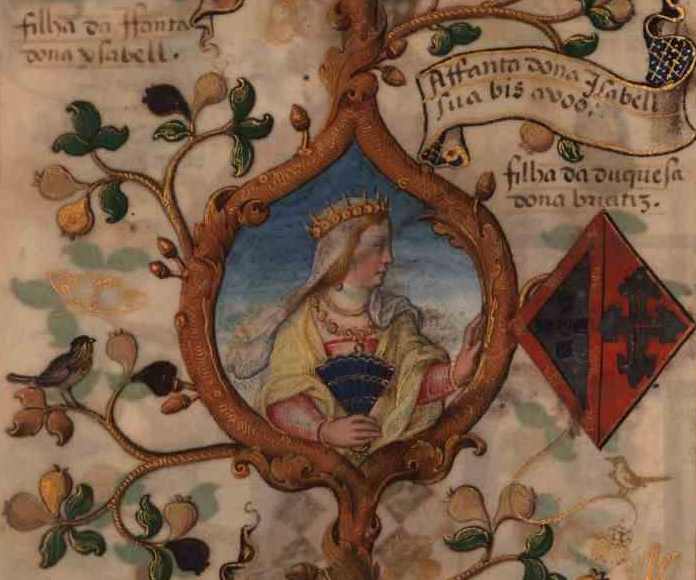 filha da Jffanta
dona ysabell.
Affanta dona Isabell
sua bis avos:
filha da duquesa
dona briatiz.